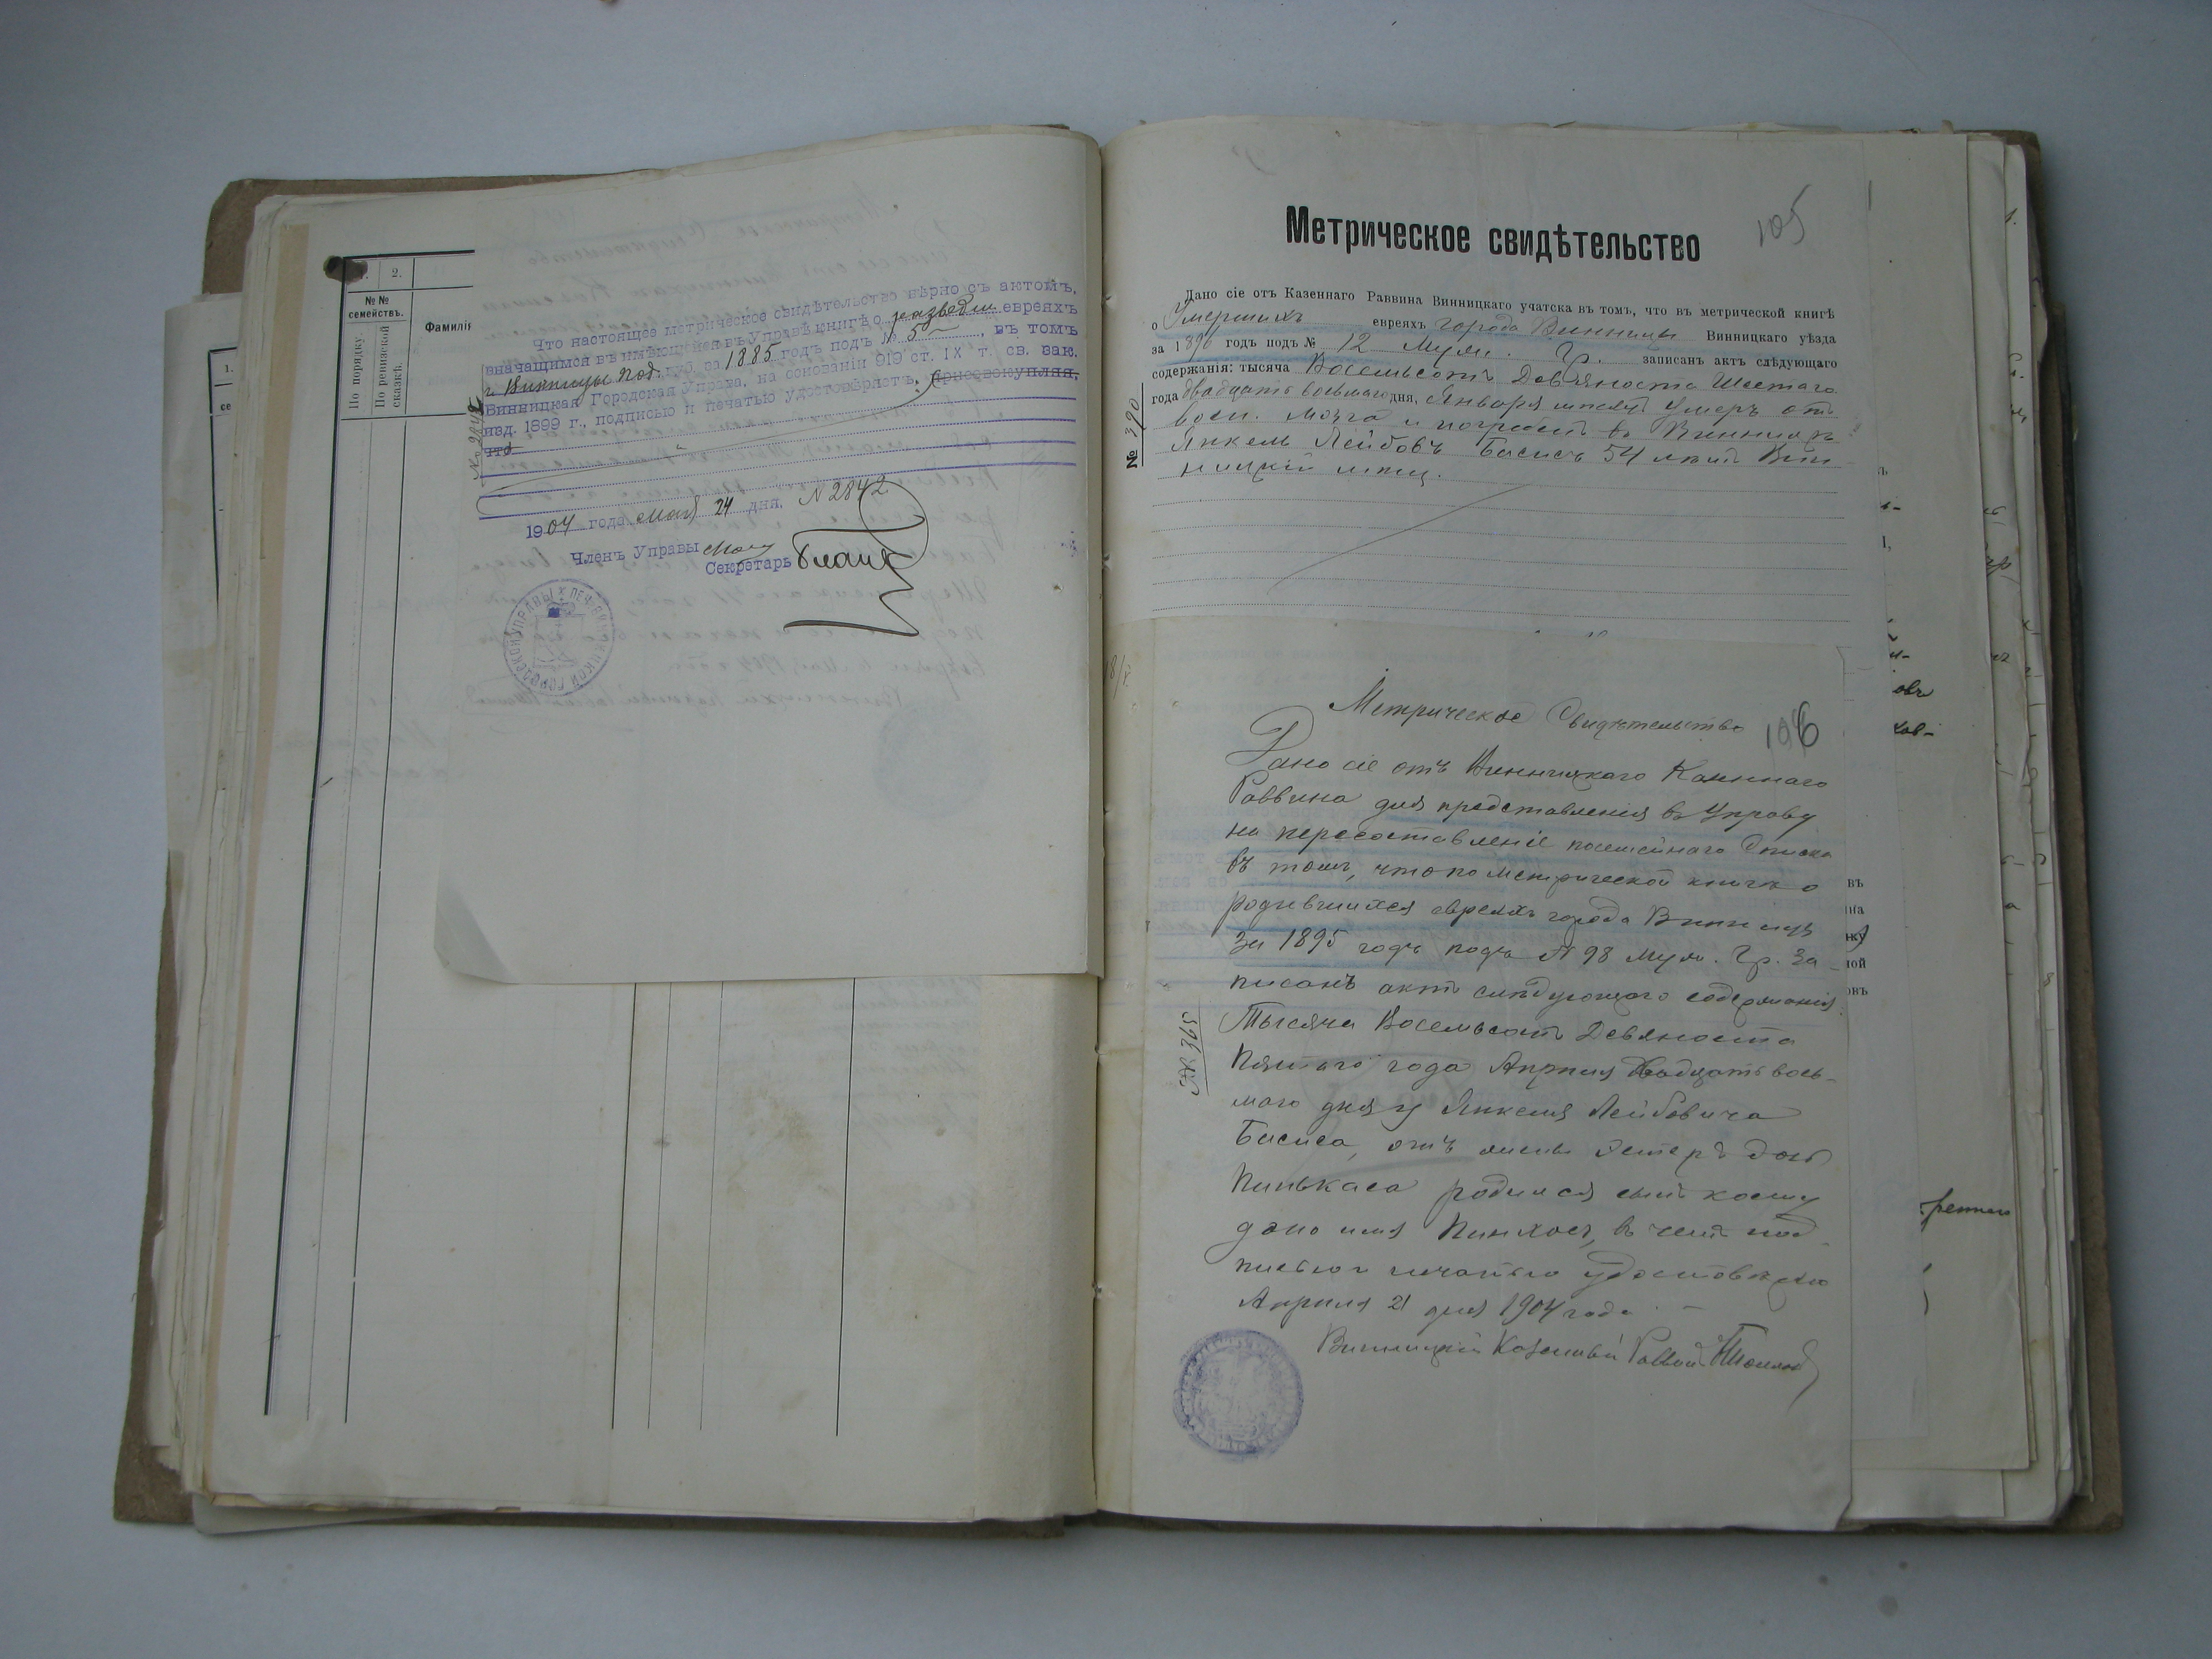 1.
2.
№№
семействъ.
По порядку
По ревизской
сказкѣ.
Что настоящее метрическое свидѣтельство вѣрно съ актомъ,
значащимся въ имѣющейся въ Управѣ книгѣ о разводѣ евреяхъ
г. Винницы Под. губ. за 1885 годъ подъ № 5, въ томъ
Винницкая Городская Управа, на основаніи 919 ст. IX т. св. зак.
изд. 1899 г., подписью и печатью удостовѣряетъ; присовокупляя,
что
1904 года Мая 24 дня. N 2842
Членъ Управы
Секретарь
105
Метрическое свидѣтельство
Дано сіе отъ Казеннаго Раввина Винницкаго учатска въ томъ, что въ метрической книгѣ
о Умершихъ евреяхъ города Винницы Винницкаго уѣзда
за 1896 годъ подъ № 12 Муж. Гр. записанъ актъ слѣдующаго
содержанія: тысяча Восемьсотъ Девяноста Шестаго
года двадцать восьмаго дня, Января мѣсяца Умеръ отъ
восп. мозга и погребенъ въ Винницѣ
Янкель Лейбовъ Басисъ 54 лѣтъ Вин
ницкій мѣщ.
№ 390
106
Метрическое Свидѣтельство
Дано сіе отъ Винницкаго Казеннаго
Раввина для представленія въ Управу
на пересоставленіе посемейнаго Списка
въ томъ, что по метрической книгѣ о
родившихся евреяхъ города Винницы
за 1895 годъ подъ № 98 муж. Гр. За
писанъ актъ слѣдующаго содержанія:
Тысяча Восемьсотъ Девяноста
Пятаго года Апрѣля двадцать вось-
маго дня у Янкеля Лейбовича
Басиса, отъ жены Эстеръ дочь
Пинькаса родился сынъ коему
дано имя Пинхосъ, въ чемъ под
писью и печатью удостовѣряю
Апрѣля 21 дня 1904 года
Винницкій Казенный Раввинъ
№ 395